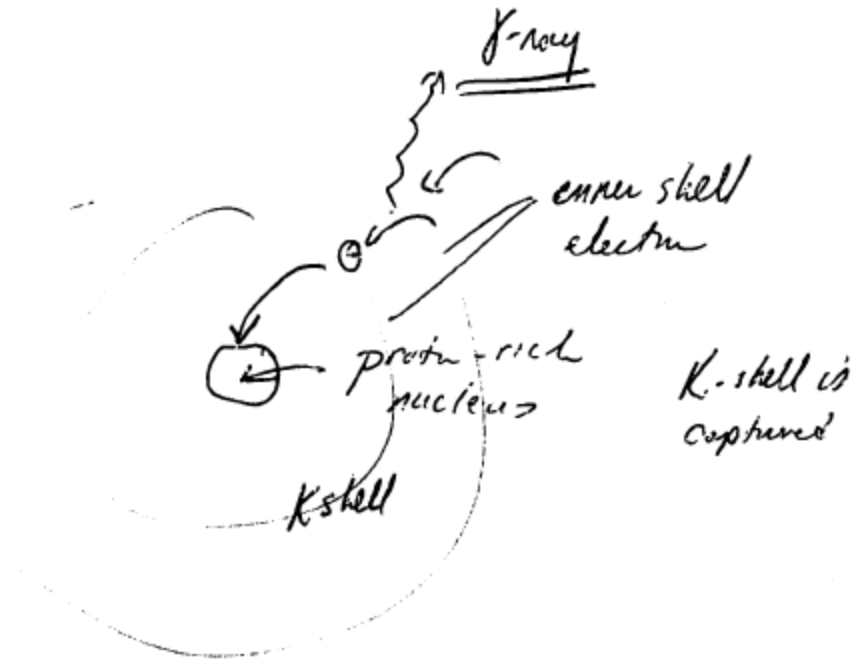 γ-ray
inner shell
electron
proton-rich
nucleus
K-shell is
captured
K shell